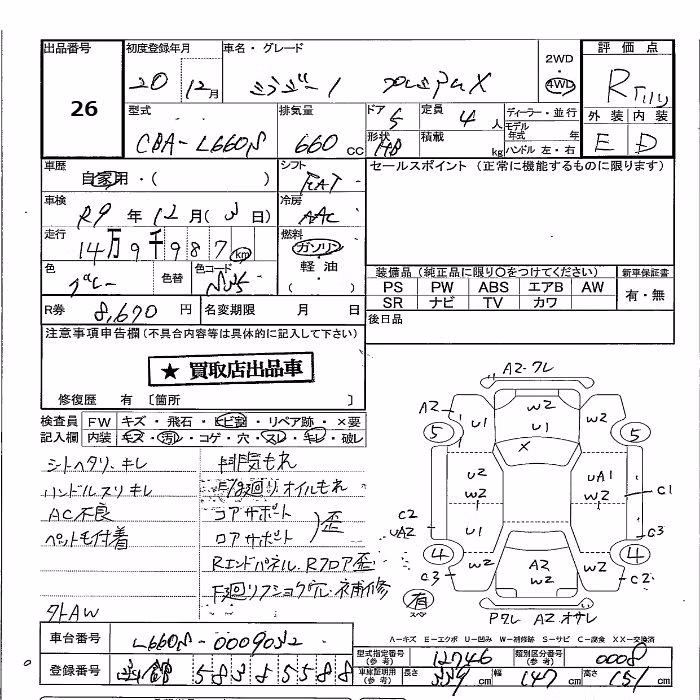 出品番号 初度登録年月 車名・グレード 2WD・4WD 評価点
26 20 12月 ミラジーノ プレミアムX R
型式 排気量 ドア 5 定員 4人 ディーラー・並行 外装 内装
CBA-L660S 660cc 形状 HB 積載 kg モデル年式 年 ハンドル 左・右 E D
車歴 自家用・( ) シフト FAT セールスポイント (正常に機能するものに限ります)
車検 R9年12月(3日) 冷房 AAC
走行 14万9千987km 燃料 ガソリン・軽油 ( )
色 色替 色コード
装備品(純正品に限り○をつけてください) 新車保証書
PS PW ABS エアB AW 有・無
SR ナビ TV カワ
R券 8,670円 名変期限 月 日 後日品
注意事項申告欄(不具合内容等は具体的に記入して下さい)
★ 買取店出品車
修復歴 有〔箇所 〕
検査員記入欄 FW キズ・飛石・ヒビ割・リペア跡・×要
内装 キズ・汚レ・コゲ・穴・スレ・キレ・破レ
シートヘタリ、キレ 排気もれ
ハンドルスリキレ オイルもれ
AC不良 コアサポート
ペット毛付着 ロアサポート 歪
Rエンドパネル、Rフロア歪
F廻リフショクグル・補修
外AW
A2・ワレ
A2 U1 W2 U1 W2
5 × 5
U2 W2 UA1 W2 C1
C2 UA2 U1 W2 C3
4 A2 W2 4
C3 W2 W2 C2
有 スペア
ワレ A2 オサレ
A－キズ E－エクボ U－凹み W－補修跡 S－サビ C－腐食 XX－交換済
車台番号 L660S-0009032 型式指定番号(参考) 12746 類別区分番号(参考) 0008
登録番号 583 5588 車庫証明用(参考) 長さ 339cm 幅 147cm 高さ 151cm